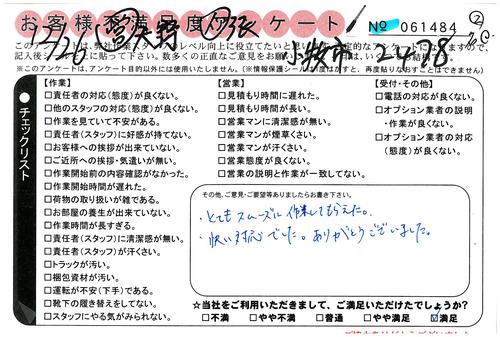 お客様不満足度アンケート!
№ 061484
②
12/26
小牧市
2478
このアンケートは、弊社作業スタッフのレベル向上に役立てたいと
※このアンケートは、アンケート目的以外には使用いたしません。(※情報保護シールをはがすと、再度貼りなおすことはできません)
●チェックリスト
【作業】
□責任者の対応(態度)が良くない。
□他のスタッフの対応(態度)が良くない。
□作業を見ていて不安がある。
□責任者(スタッフ)に好感が持てない。
□お客様への挨拶が出来ていない。
□ご近所への挨拶・気遣いが無い。
□作業開始前の内容確認がなかった。
□作業開始時間が遅れた。
□荷物の取り扱いが雑である。
□お部屋の養生が出来ていない。
□作業時間が長すぎる。
□責任者(スタッフ)に清潔感が無い。
□責任者(スタッフ)が汗くさい。
□トラックが汚い。
□梱包資材が汚い。
□運転が不安(下手)である。
□靴下の履き替えをしてない。
□スタッフにやる気がみられない。
【営業】
□見積もり時間に遅れた。
□見積もり時間が長い。
□営業マンに清潔感が無い。
□営業マンが煙草くさい。
□営業マンが汗くさい。
□営業態度が良くない。
□営業の説明と作業が一致してない。
【受付・その他】
□電話の対応が良くない。
□オプション業者の説明
・作業が良くない。
□オプション業者の対応
(態度)が良くない。
その他、ご意見・ご要望等ありましたらお書き下さい。
・とてもスムーズに作業してもらえた。
・快い対応でした。ありがとうございました。
☆当社をご利用いただきまして、ご満足いただけたでしょうか?
□不満 □やや不満 □普通 □やや満足 ☑満足